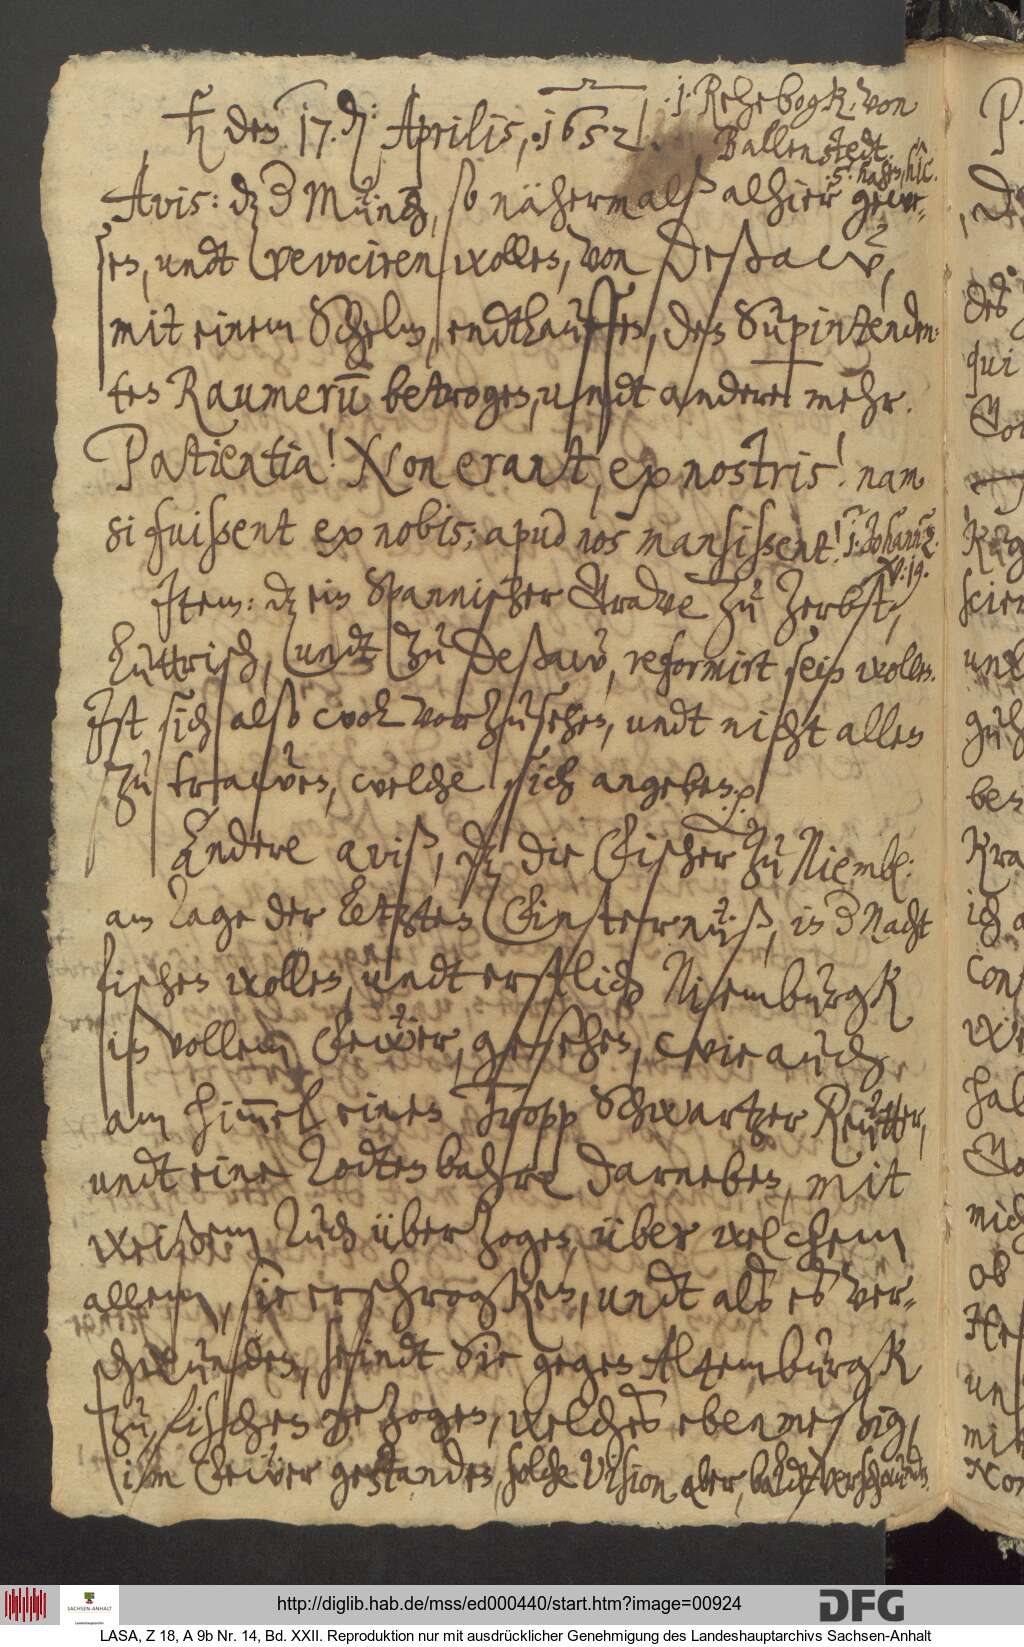 ♄ den 17. d: Aprilis, 1652.
1. Rehebogk. von
Ballenstedt,
5. hasen, hîc.
Avis: dz der Münch, so nähermalß alhier gewe-
sen, undt revociren wollen, von Deßaw,
mit einem Schelm, endtlauffen, den Supintenden-
ten Raumerum betrogen, undt andere mehr.
Patientia! Non erant, ex nostris! nam
si fuissent ex nobis; apud nos mansissent! 1. Johann: 2.
v: 19.
Item: dz ein Spannischer Grave zu Zerbst,
Luttrisch, undt zu Deßaw, reformirt sein wollen.
Ist sich also wol vorzusehen, undt nicht allen
zu trawen, welche sich angeben. p
Andere aviß, dz die Fischer zu Niemb:
am Tage der letzten Finsternüß, in der Nacht
fischen wollen, undt erstlich Niemburgk
in vollem Fewer, gesehen, wie auch
am himmel einen Tropp Schwartzer Reutter,
undt eine Todtenbahre darneben, mit
weißem Tuch überzogen, über welchem
allem, sie erschrogken, undt als es ver-
schwunden, seindt Sie gegen Altemburgk
zu, fischen gezogen, welches ebenmeßig,
im Fewer gestanden, solche Vision aber, baldt verschwunden.
http://diglib.hab.de/mss/ed000440/start.htm?image=00924
SACHSEN-ANHALT
DFG
LASA, Z 18, A 9b Nr. 14, Bd. XXII. Reproduktion nur mit ausdrücklicher Genehmigung des Landeshauptarchivs Sachsen-Anhalt